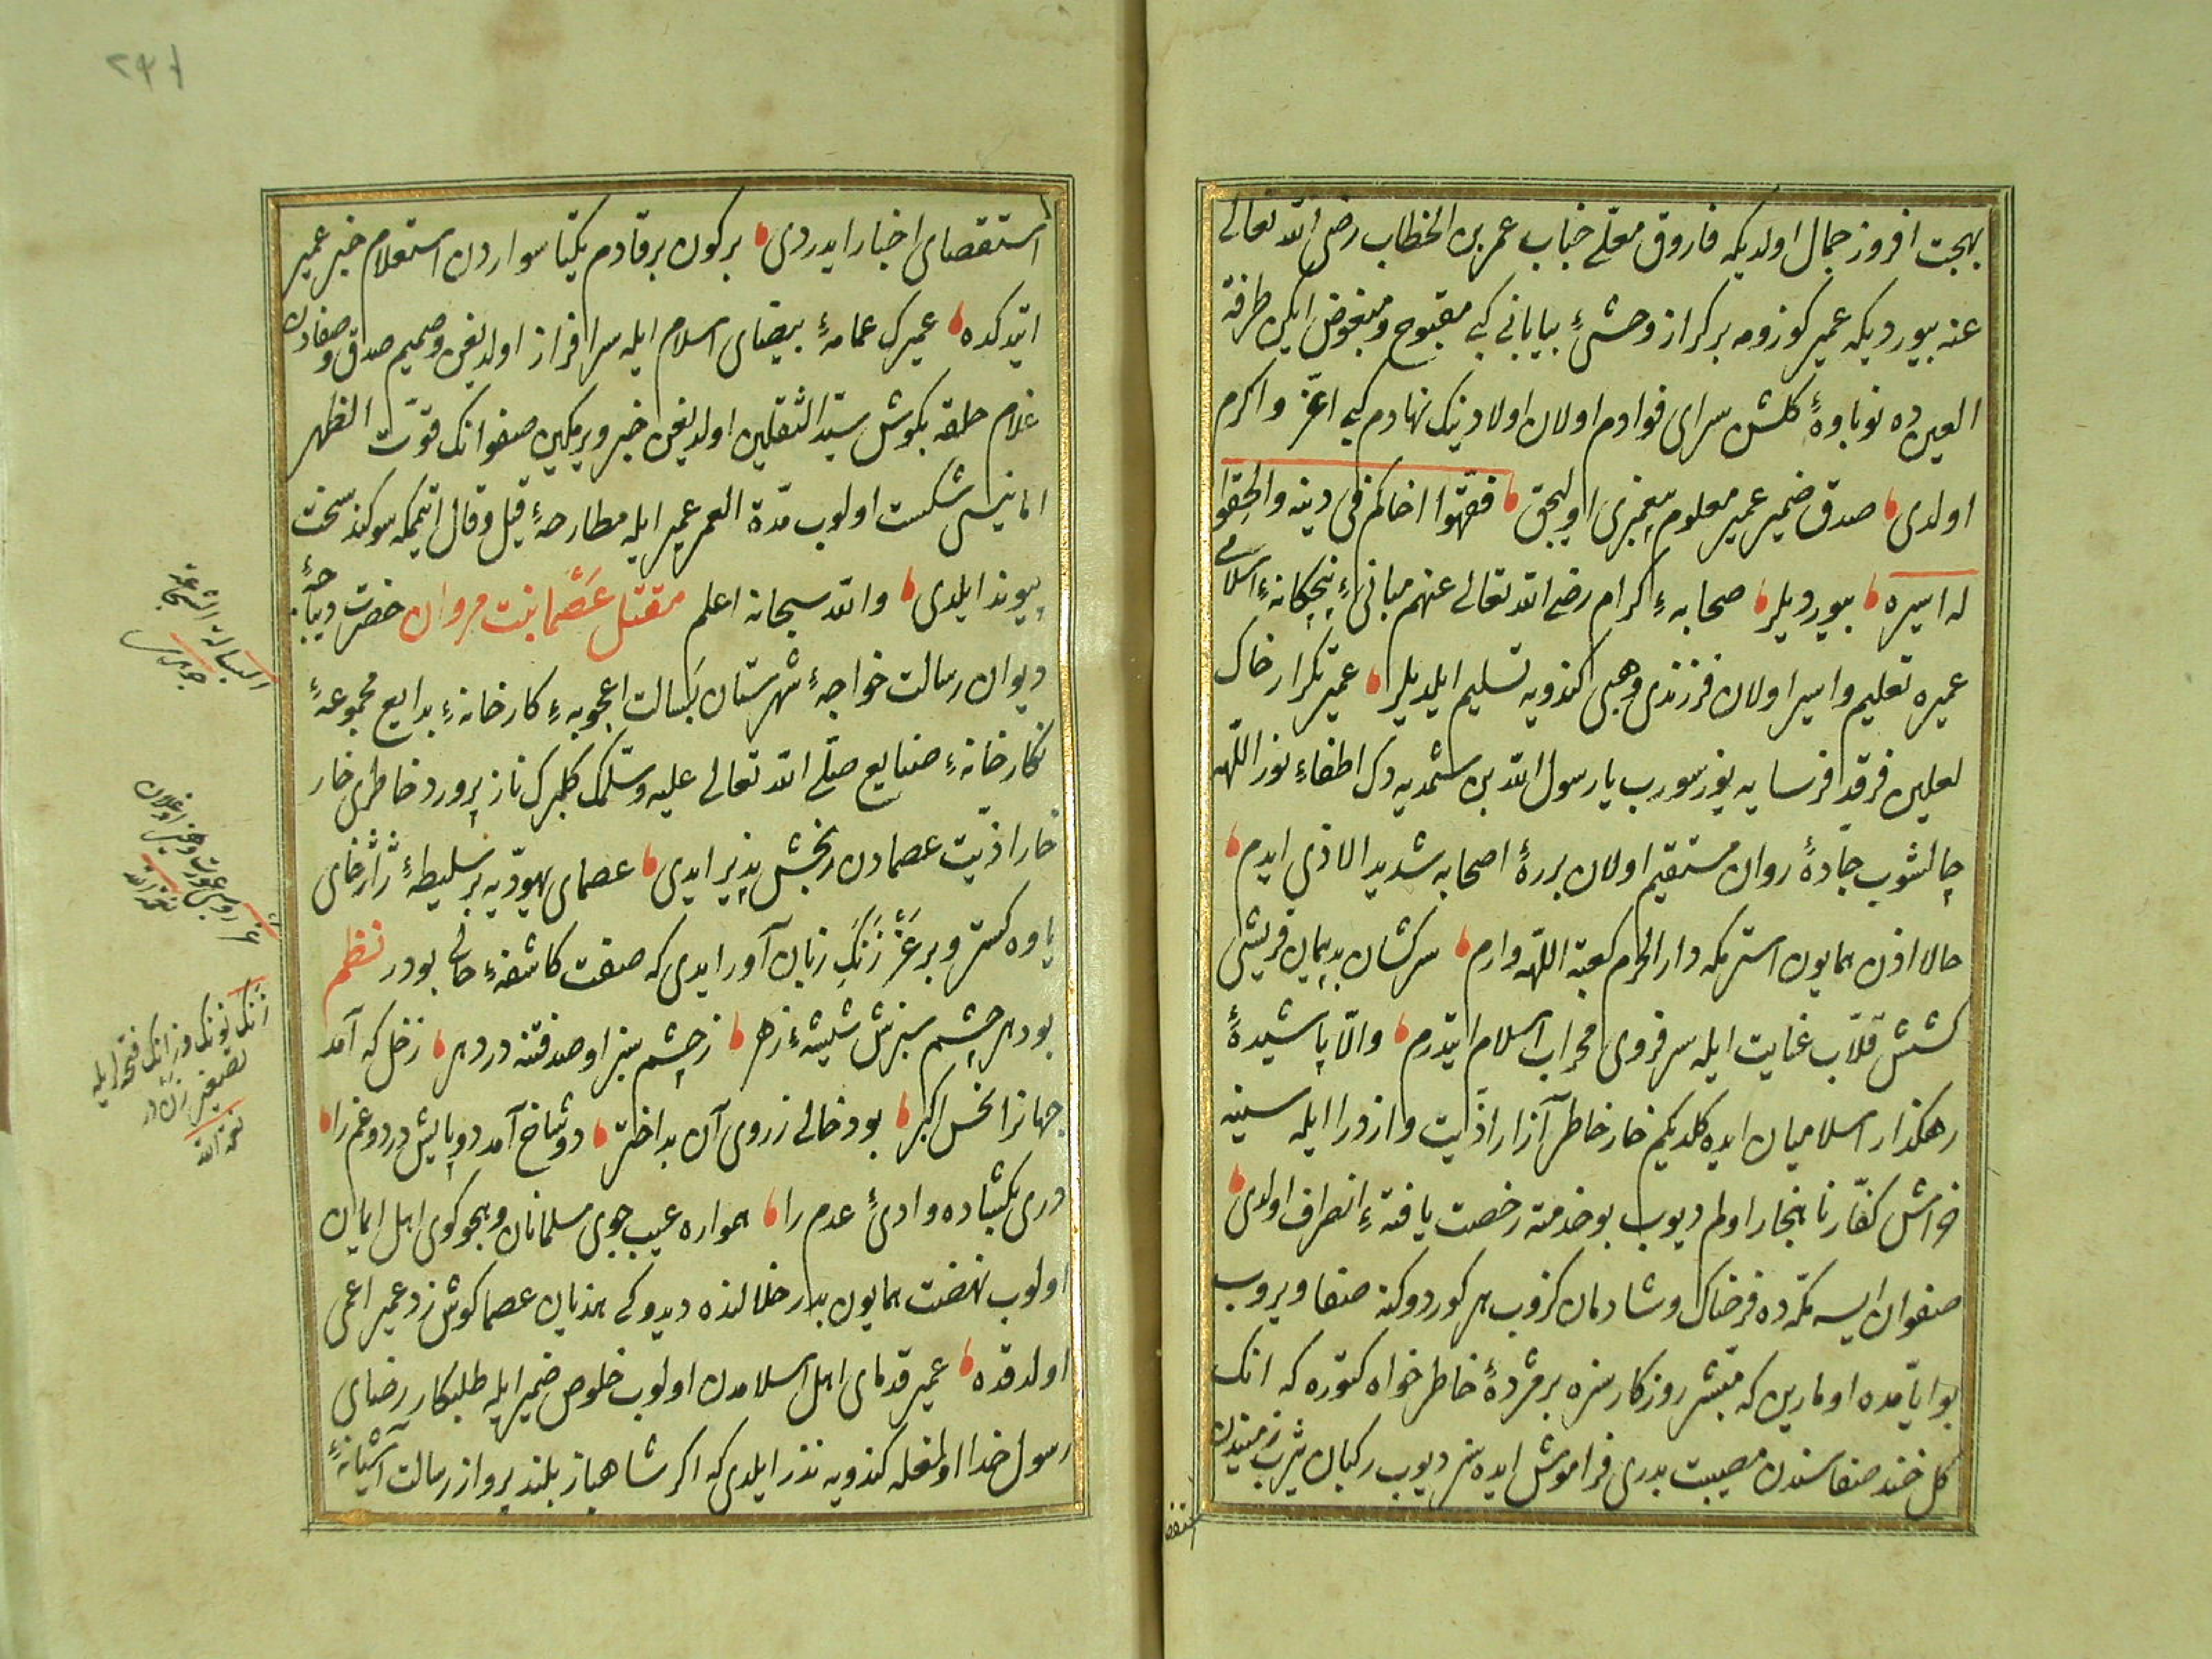 بهجت افروز جمال اولدیکه فاروق معلی جناب عمر بن الخطاب رضی الله تعالی
عنه بیوردیکه عمیر کوزومه بر کراز وحشیٔ بیابانی کبی مقبوح و مبغوض ایکن طرفة
العین ده نوباوهٔ کلشن سرای فوادم اولان اولاد نیک نهادم کبی اعز و اکرم
اولدی صدق ضمیر عمیر معلوم پیغمبری اولیجق فقهوا اخاکم فی دینه والحقوا
له اسیره بیوردیلر صحابهٔ کرام رضی الله تعالی عنهم مبانیٔ پنجکانهٔ اسلامی
عمیره تعلیم و اسیر اولان فرزندی وهبی کندویه تسلیم ایلدیلر عمیر تکرار خاک
نعلین فرقد فرسایه یوز سورب یا رسول الله بن شمدیه دک اطفاء نور اللهه
چالشوب جادهٔ روان مستقیم اولان بررهٔ اصحابه شدید الاذی ایدم
حالا اذن همایون استرمکه دار الحرم کعبة اللهه وارم سرکشان بدپیمان قریشی
کشش قلاب عنایت ایله سرفروی محراب اسلام ایتدرم والا پاشیدهٔ
رهکذار اسلامیان ایده کلدیکم خار خاطر آزار اذیت و ازورا ایله سینه
خراش کفار نا بهنجار اولم دیوب بو خدمته رخصت یافتهٔ انصراف اولدی
صفوان ایسه مکه ده فرحناک و شادمان کزوب هر کوردوکنه صفا ویروب
بو ایامده اومارین که مبشر روزکار سزه بر مژدهٔ خاطر خواه کتوره که انک
کل خند صفاسندن مصیبت بدری فراموش ایده سز دیوب رکبان یثرب زمیندن
استقصا
استقصای اخبار ایدردی بر کون بر قادم یکتا سواردن استعلام خبر عمیر
ایتدکده عمیرک عمامهٔ بیضای اسلام ایله سرافراز اولدیغن و صمیم صدق و صفادن
غلام حلقه بکوش سید الثقلین اولدیغن خبر ویریجک صفوانک قوت الظهر
امانیسی شکست اولوب مدة العمر عمیر ایله مطارحهٔ قیل و قال ایتممکه سوکند سخت
پیوند ایلدی والله سبحانه اعلم مقتل عصما بنت مروان حضرت دیباجهٔ
دیوان رسالت خواجهٔ شهرستان بسالت اعجوبهٔ کارخانهٔ بدایع مجموعهٔ
نکارخانهٔ صنایع صلی الله تعالی علیه وسلمک کلبرک نازپرورد خاطری خار
خار اذیت عصمادن رنجش پذیر ایدی عصمای یهودیه بر سلیطهٔ ژاژخای
یاوه کستر و بر غر زنک زبان آور ایدی که صفت کاشفهٔ حالی بودر نظم
بود هر چشم سبزش شیشهٔ زهر ز چشم سبز او صد فتنه در دهر زحل که آمد
جهانرا نحس اکبر بود خالی ز روی آن بد اختر دو شاخ آمد دو پایش درد و غم را
دری بکشاده وادیٔ عدم را همواره عیب جوی مسلمانان و هجوکوی اهل ایمان
اولوب نهضت همایون بدر خلالنده دیدوکی هذیان عصما کوش زد عمیر اعمی
اولدقده عمیر قدمای اهل اسلامدن اولوب خلوص ضمیر ایله طلبکار رضای
رسول خدا اولمغله کندویه نذر ایلدی که اکر شاهباز بلند پرواز رسالت آشیانهٔ
البسالة الشجاعة
جوهری
نعمة الله
زنک نونک و زانک فتحه ایله
تصغیر زن در
نعمة الله